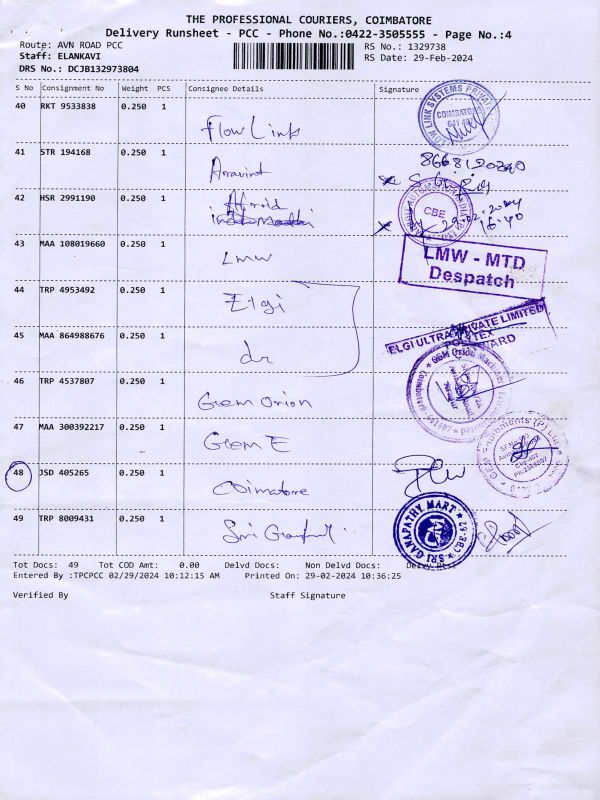 THE PROFESSIONAL COURIERS, COIMBATORE
Delivery Runsheet - PCC - Phone No.:0422-3505555 - Page No.:4
Route: AVN ROAD PCC RS No.: 1329738
Staff: ELANKAVI RS Date: 29-Feb-2024
DRS No.: DCJB132973804
S No Consignment No Weight PCS Consignee Details Signature
40 RKT 9533838 0.250 1 Flow Link
41 STR 194168 0.250 1 Aravint 8668120840
42 HSR 2991190 0.250 1 CBE 29.02.2024 16:40
43 MAA 108019660 0.250 1 LMW LMW - MTD
Despatch
44 TRP 4953492 0.250 1 Elgi
ELGI ULTRA PRIVATE LIMITED
45 MAA 864988676 0.250 1 do
46 TRP 4537807 0.250 1 Gem Orion
47 MAA 300392217 0.250 1 Gem E
48 JSD 405265 0.250 1 Coimatore
49 TRP 8009431 0.250 1 Sri SRI GANAPATHY MART
Tot Docs: 49 Tot COD Amt: 0.00 Delvd Docs: Non Delvd Docs:
Entered By :TPCPCC 02/29/2024 10:12:15 AM Printed On: 29-02-2024 10:36:25
Verified By Staff Signature